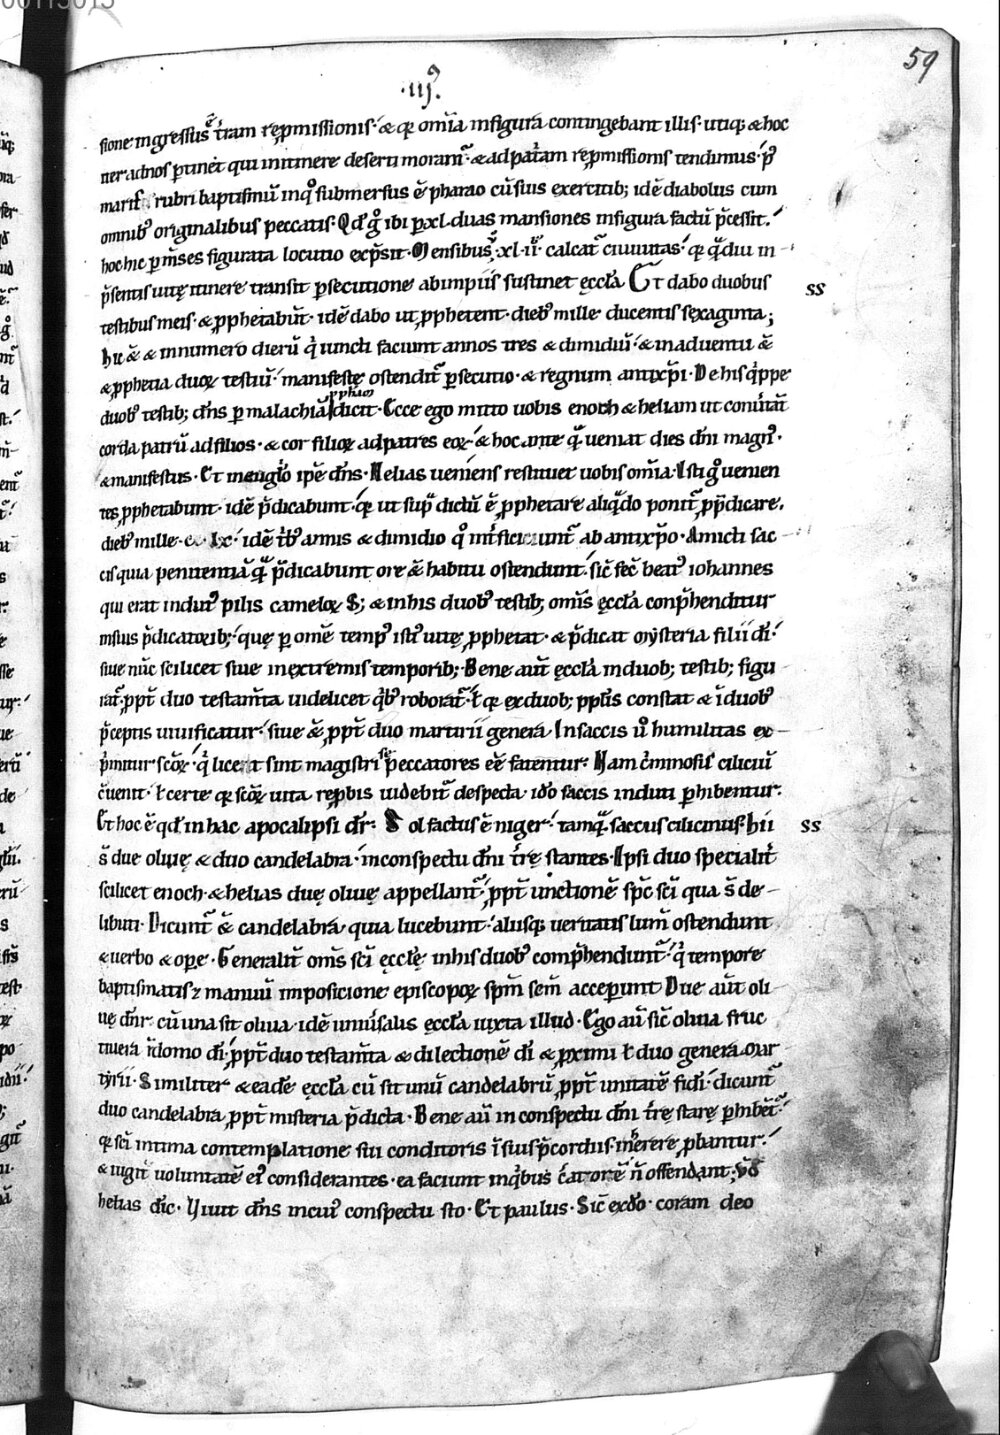 59
·iijꝰ·
sione ingressus ē t̄ram rep̄missionis· ⁊ q̇ om̄ia in figura contingebant illis· utiq; ⁊ hoc
iter ad nos p̱tinet qui in itinere deserti moram᷑· ⁊ ad pat̄am rep̄missionis tendimus· p̱
maris rubri baptismū in q̊ submersus ē pharao cū suis exercitib; idē diabolus cum
omnib᷒ originalibus peccatis· Qd̄ g̊ ibi p̱ xl duas mansiones in figura factū p̄cessit·
hoc hic p̱ m̄ses figurata locutio exp̄sit· Mensibus xl·ii· calcat᷑ ciuitas· q̇ q̄diu in
p̄sentis uitę itinere transit p̱secutione ab impiis sustinet ęccl̄a Et dabo duobus
ss
testibus meis· ⁊ ꝓphetabūt· idē dabo ut ꝓphetent· dieb᷒ mille ducentis sexaginta;
⁊ in numero dierū q̇ iuncti faciunt annos tres ⁊ dimidiū· ⁊ in aduentu ⁊
⁊ ꝓphetia duoꝝ testiū· manifestę ostendit᷑ p̱secutio· ⁊ regnum antixp̄i· De his q̇ppe
duob᷒ testib; dn̄s p̱ malachiā ꝓph̄am dicit· Ecce ego mitto uobis enoch ⁊ heliam ut conu̇tāt
corda patrū ad filios· ⁊ cor filioꝝ ad patres eoꝝ· ⁊ hoc ante q̄ ueniat dies dn̄i magn᷒·
⁊ manifestus· Et in eugl̇o ip̄e dn̄s· Helias ueniens restituet uobis om̄ia· Isti g̊ uenien
tes ꝓphetabunt· idē p̄dicabunt· q̇ ut sup̄ dictū ē ꝓphetare aliq̄do ponit᷑ ꝓ p̄dicare·
dieb᷒ mille cc lx· idē t̄b᷒ annis ⁊ dimidio q̊ int̄ficiunt᷑ ab antixp̄o· Amicti sac
cis quia penitentiā q̄ p̄dicabunt ore ⁊ habitu ostendunt· sic̄ fec̄ beat᷒ iohannes
qui erat indut᷒ pilis cameloꝝ S; ⁊ in his duob᷒ testib; om̄s ęccl̄a conp̄henditur
in suis p̄dicatorib; quę p̱ om̄e temp᷒ isti᷒ uitę ꝓphetat· ⁊ p̄dicat mẏsteria filii dī·
siue nūc scilicet siue in extremis temporib; Bene aūt ęccl̄a in duob; testib; figu
rat᷑· ꝓpt̄ duo testam̄ta uidelicet q̇b᷒ roborat᷑· ł q̇ ex duob; ppl̄is constat ⁊ ī duob᷒
p̄ceptis uiuificatur· siue ⁊ ꝓpt̄ duo martirii genera In saccis ů humilitas ex
p̄mitur sc̄oꝝ· q̇ licet sint magistri se peccatores eē fatentur· Nam c̄minosis ciliciū
c̄uenit· ł certe q̇ sc̄oꝝ uita rep̄bis uidebit᷑ despecta· ido̊ saccis induti p̱hibentur·
Et hoc ē qd̄ in hac apocalipsi dr̄· Sol factus ē niger· tamq̄ saccus cilicinus· hii
ss
s̄ due oliuę ⁊ duo candelabra· in conspectu dn̄i t̄rę stantes· Ipsi duo specialit̄
scilicet enoch ⁊ helias duę oliuę appellant᷑· ꝓpt̄ unctionē sp̄c sc̄i qua s̄ de
libuti· Dicunt᷑ ⁊ candelabra quia lucebunt· aliisq; ueritatis lum̄ ostendunt
⁊ uerbo ⁊ ope̱· Generalit̄ om̄s sc̄i ęccl̄ę in his duob᷒ comp̄hendunt᷑· q̇ tempore
baptismatis ⁊ manuū imposicione episcopoꝝ sp̄m sem̄ acceperunt Due aūt oli
uę dn̄r· cū una sit oliua· idē uniu̇salis ęccl̄a iuxta illud· Ego aū sic̄ oliua fruc
tuera ī domo dī· ꝓpt̄ duo testam̄ta ⁊ dilectionē dī ⁊ ꝓximi ł duo genera mar
tẏrii· Similiter ⁊ eadē ęccl̄a cū sit unū candelabrū ꝓpt̄ unitatē fidi· dicunt᷑
duo candelabra ꝓpt̄ misteria p̄dicta· Bene aū in conspectu dn̄i t̄rę starę p̱hibēt᷑·
q̇ sc̄i intima contemplatione sui conditoris ī suis p̄cordiis in̄herere ꝓbantur·
⁊ iugit̄ uoluntatē ei᷒ considerantes· ea faciunt in q̇bus c̄atorē n̄ offendant;
helias dic̄· Viuit dn̄s in cui᷒ conspectu sto· Et paulus· Sic̄ ex do̊· coram deo